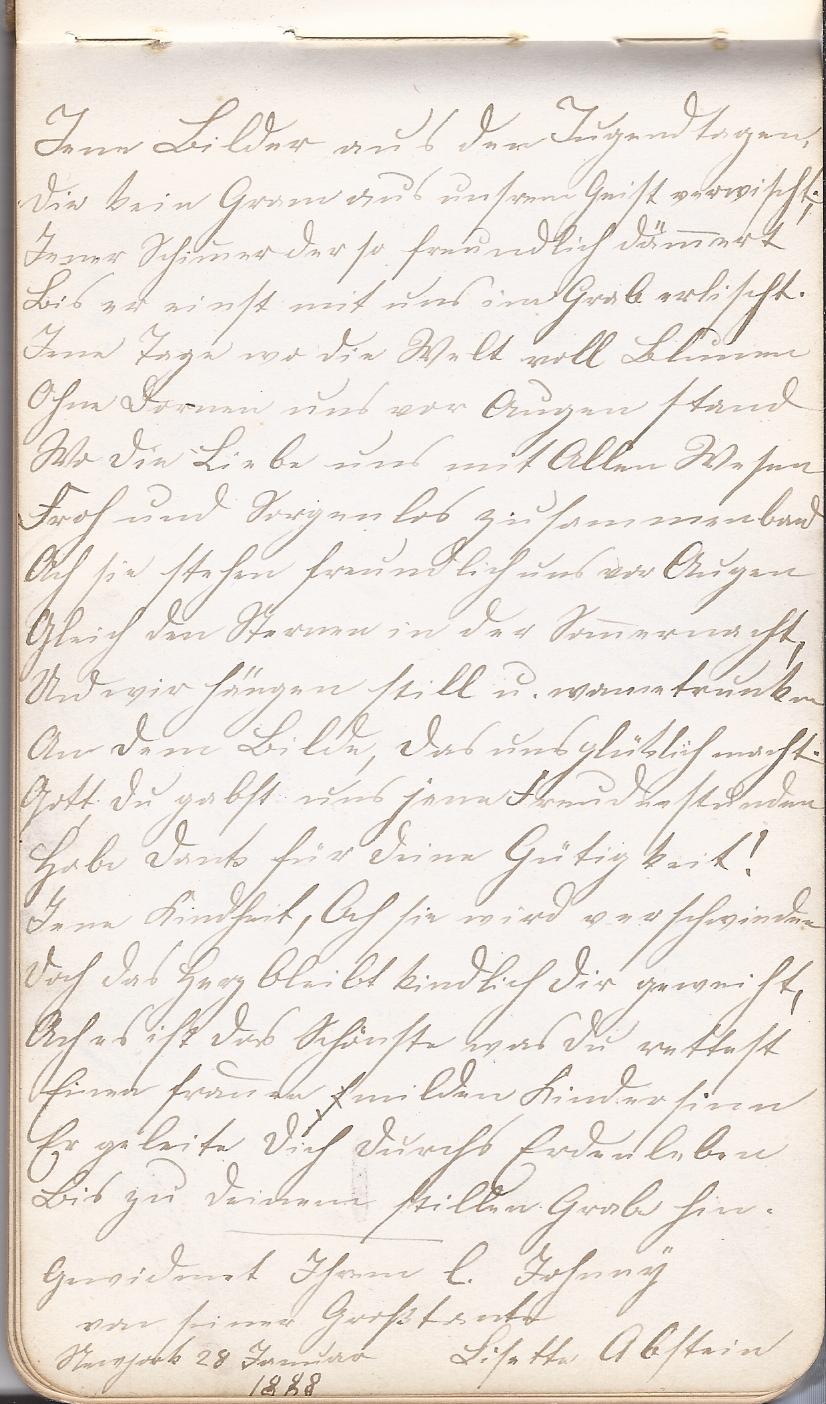 Jene Bilder aus den Jugendtagen,
Die kein Gram aus unsrem Geist verwischt;
Jener Schimer der so freundlich däm̄ert
Bis er einst mit uns im Grab erlischt.
Jene Tage wo die Welt voll Blumen
Ohne Dornen uns vor Augen stand
Wo die Liebe uns mit Allen Wesen
Froh und Sorgenlos zusammenband
Ach sie stehen freundlich uns vor Augen
Gleich den Sternen in der Som̄ernacht,
Und wir hängen still u. wonnetrunken
An dem Bilde, das uns glüklich macht.
Gott, du gabst uns jene Freudenstunden
Habe Dank für deine Gütigkeit!
Jene Kindheit, Ach sie wird verschwinden
Doch das Herz bleibt kindlich dir geweiht,
Ach es ist das Schönste was du rettest
Einen from̄en milden Kindersinn
Er geleite Dich durchs Erdenleben
Bis zu deinem stillen Grabe hin.
Gewidmet Ihrem l. Johnnÿ
von seiner Großtante
Newyork 28 Januar Lisette Abstein
1888